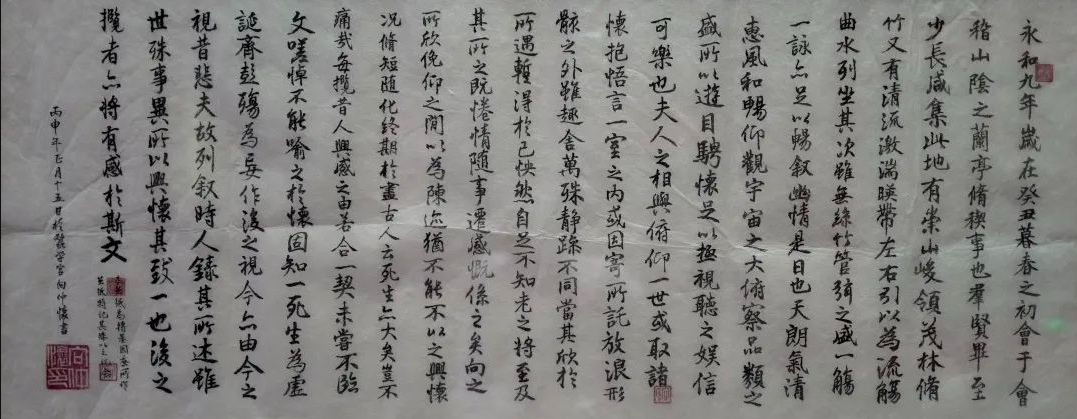 永和九年歲在癸丑暮春之初會于會
稽山陰之蘭亭脩稧事也羣賢畢至
少長咸集此地有崇山峻領茂林脩
竹又有清流激湍暎帶左右引以為流觴
曲水列坐其次雖無絲竹管弦之盛一觴
一詠亦足以暢叙幽情是日也天朗氣清
惠風和暢仰觀宇宙之大俯察品類之
盛所以遊目騁懷足以極視聽之娛信
可樂也夫人之相與俯仰一世或取諸
懷抱悟言一室之内或因寄所託放浪形
骸之外雖趣舍萬殊静躁不同當其欣於
所遇暫得於己怏然自足不知老之將至及
其所之既惓情随事遷感慨係之矣向之
所欣俛仰之閒以為陳迹猶不能不以之興懷
况脩短随化終期於盡古人云死生亦大矣豈不
痛哉每攬昔人興感之由若合一契未嘗不臨
文嗟悼不能喻之於懷固知一死生為虛
誕齊彭殤為妄作後之視今亦由今之
視昔悲夫故列叙時人錄其所述雖
世殊事異所以興懷其致一也後之
攬者亦將有感於斯文
丙申年正月十五日於蠶学宫向仲懷書